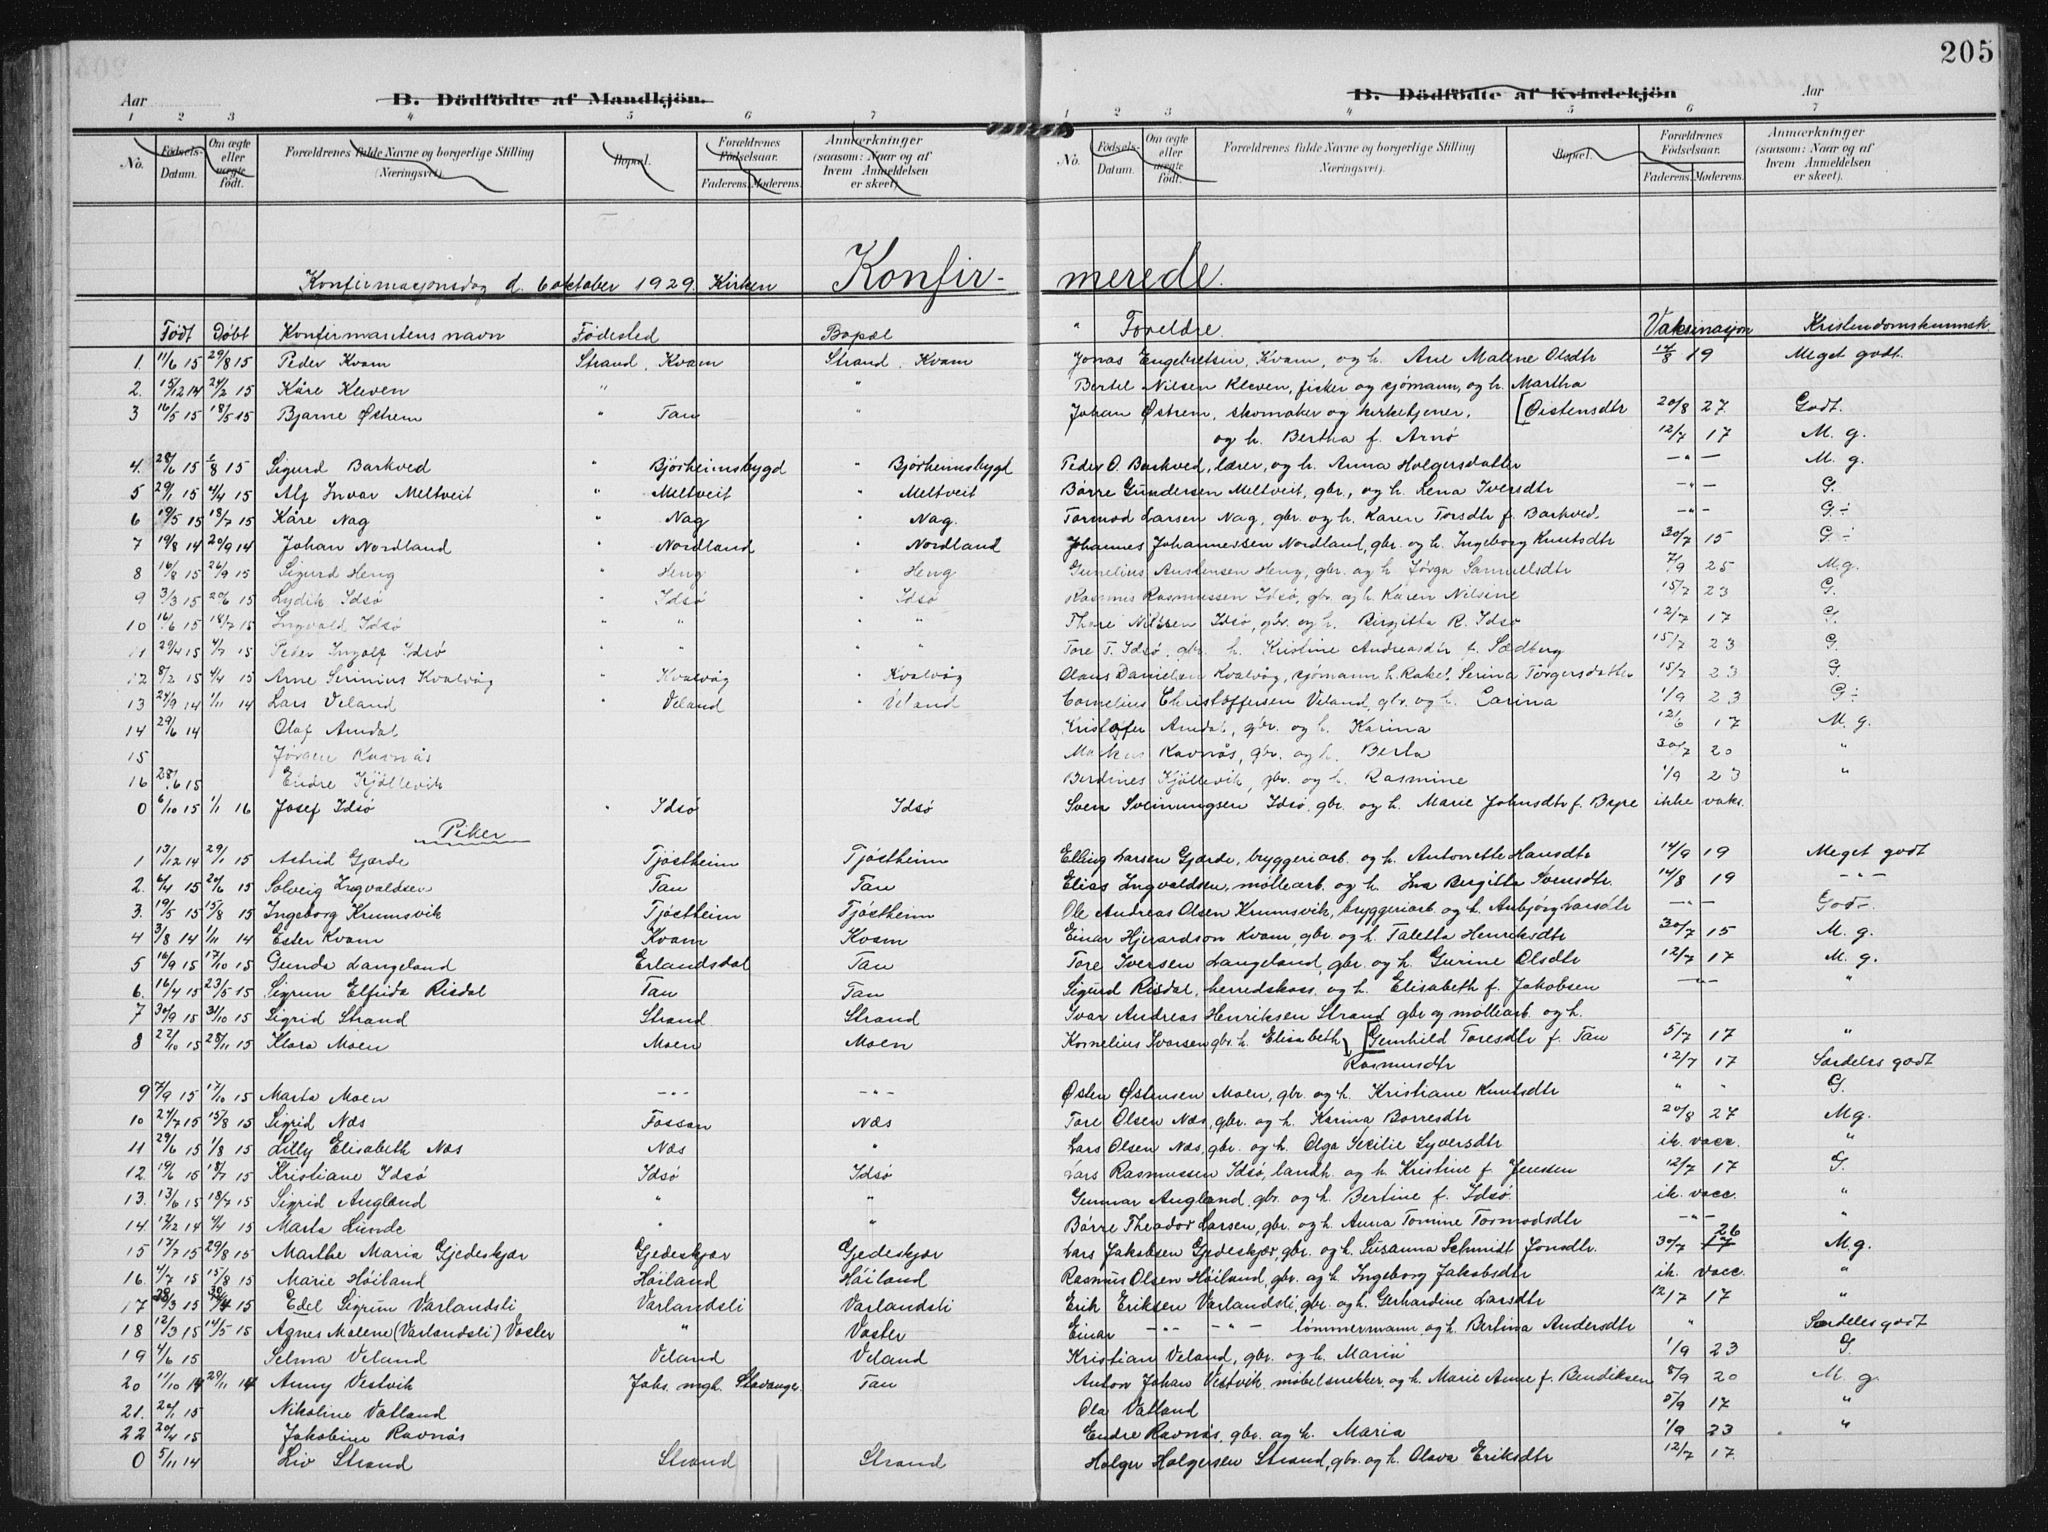 205
Aar B. Dödfödte af Mandkjön.
B. Dödfödte af Kvindekjön Aar
1 2 3 4 5 6 7
1 2 3 4 5 6 7
No. Födsels-Datum. Om ægte eller uægte födt. Forældrenes fulde Navne og borgerlige Stilling (Næringsvei). Bopæl. Forældrenes Födselsaar. Faderens. Moderens. Anmærkninger (saasom: Naar og af hvem Anmeldelsen er skeet).
No. Födsels-Datum. Om ægte eller uægte födt. Forældrenes fulde Navne og borgerlige Stilling (Næringsvei). Bopæl. Forældrenes Födselsaar. Faderens. Moderens. Anmærkninger (saasom: Naar og af hvem Anmeldelsen er skeet).
Konfirmasjonsdag d. 6 oktober 1929. Kirken Konfir- merede.
Født Døbt Konfirmantens navn Fødested Bopæl " Foreldre Vaksinasjon Kristendomskunnsk.
1. 11/6 15 29/8 15 Peder Kvam Strand, Kvam Strand, Kvam Jonas Engebretsen, Kvam, og h. Ane Malene Olsdtr 14/8 19 Meget godt.
2. 15/12 14 24/2 15 Kåre Kleven " " Bertel Nilsen Kleven, fisker og sjømann, og h. Martha
3 16/5 15 18/5 15 Bjarne Østrem " Tau " Johan Østrem, skomaker og kirketjener, [Øistensdtr 20/8 27 Godt.
og h. Bertha f. Arnø 12/7 17 M. g.
4. 28/6 15 8 15 Sigurd Barkved " Bjørheimsbygd " Bjørheimsbygd Peder O. Barkved, lærer, og h. Anna Holgersdatter -"- M. g.
5 29/1 15 4/4 15 Alf Invar Meltveit " Meltveit " Meltveit Børre Gundersen Meltveit, gbr., og h. Lena Iversdtr -"- G.
6 19/5 15 18/7 15 Kåre Nag " Nag " Nag. Tormod Larsen Nag, gbr. og h. Karen Torsdtr f. Barkved. -"- G.÷
7 19/8 14 20/9 14 Johan Nordland " Nordland " Nordland Johannes Johannessen Nordland, gbr. og h. Ingeborg Knutsdtr 30/7 15 G.÷
8 16/8 15 26/9 15 Sigurd Heng " Heng " Heng Gunelius Austensen Heng, gbr. og h. Jørga Samuelsdtr 7/9 25 M.g.
9 3/3 15 20/6 15 Lydik Idsø " Idsø " Idsø Rasmus Rasmussen Idsø, gbr. og h. Karen Nilsine 15/7 23 G.
10 16/6 15 18/7 15 Ingvald Idsø " " " " Thore Nilssen Idsø, gbr. og h. Birgitta R. Idsø 12/7 17 G.
11 29/4 15 4/7 15 Peder Ingolf Idsø " " " " Tore T. Idsø, gbr. h. Kristine Andreasdtr f. Sædberg 15/7 23 G.
12 8/2 15 4/4 15 Arne Serinius Kvalvåg " Kvalvåg " Kvalvåg Olaus Danielsen Kvalvåg, sjømann h. Rakel Serina Torgersdatter 15/7 23 G.
13 24/9 14 1/11 14 Lars Veland " Veland " Veland Cornelius Christoffersen Veland, gbr. og h. Carina 1/9 23 G÷
14 29/6 14 Olaf Amdal Kristofer Amdal, gbr. og h. Karina 12/6 17 M. g.
15 Jørgen Ravnås Markus Ravnås, gbr. og h. Berta 30/7 20 "
16 28/6 15 Endre Kjøllevik Berdines Kjøllevik, gbr. og h. Rasmine 1/9 23 "
0 6/10 15 1/1 16 Josef Idsø " Idsø Idsø Sven Sveinungsen Idsø, gbr. og h. Marie Johnsdtr f. Byre ikke vaks.
Piker
1 13/12 14 29/1 15 Astrid Gjærde Tjøstheim Tjøstheim Elling Larsen Gjærde, bryggeriarb. og h. Antonette Hansdtr 14/9 19 Meget godt
2. 6/4 15 20/6 15 Solveig Ingvaldsen Tau Tau Elias Ingvaldsen, møllearb. og h. Ina Birgitta Svensdtr. 14/8 19 -"-
3. 19/5 15 15/8 15 Ingeborg Krumsvik Tjøstheim Tjøstheim Ole Andreas Olsen Krumsvik, bryggeriarb og h. Anbjørg Larsdtr -"- Godt.
4 3/8 14 1/11 14 Ester Kvam Kvam Kvam Einar Hjerardson Kvam, gbr. og h. Taletta Henriksdtr 30/7 15 M. g.
5 16/9 15 17/10 15 Gunda Langeland Erlandsdal Tau Tore Iversen Langeland, gbr. og h. Gurine Olsdtr 12/7 17 M. g.
6. 16/4 15 23/5 15 Sigrun Elfrida Risdal Tau Tau Sigurd Risdal, herredskass. og h. Elisabeth f. Jakobsen -"- "
7 30/9 15 31/10 15 Sigrid Strand Strand Strand Ivar Andreas Henriksen Strand gbr og møllearb. og h.
8 22/10 15 28/11 15 Klara Moen Moen Moen Kornelius Ivarsen gbr. h. Elisabeth [Gunhild Toresdtr f. Tau 5/7 17 "
Rasmusdtr 12/7 17 Særdeles godt
9 7/9 15 17/10 15 Marta Moen -"- -"- Østen Østensen Moen, gbr. og h. Kristiane Knutsdtr " " G.
10 24/7 15 15/8 15 Sigrid Næs Fossan Næs Tore Olsen Næs, gbr. og h. Karina Borresdtr 20/8 27 M.g.
11 29/6 15 1/8 15 Lilly Elisabeth Næs Næs " Lars Olsen Næs, gbr. og h. Olga Secilie Syversdtr ik. vacc. "
12. 19/6 15 18/7 15 Kristiane Idsø Idsø Idsø Lars Rasmussen Idsø, landh. og h. Kristine f. Jenssen 12/7 17 G.
13. 13/6 15 18/7 15 Sigrid Augland " " Gunnar Augland, gbr. og h. Bertine f. Idsø. ik. vacc. "
14 17/12 14 4/4 15 Marta Lunde " " Børre Theodor Larsen, gbr. og h. Anna Tomine Tormodsdtr -"- "
15 17/7 15 29/8 15 Marthe Maria Gjedeskjær Gjedeskjær Gjedeskjær Lars Jakobsen Gjedeskjær, gbr. og h. Susanna Schmidt Jonsdtr. 30/7 17 26 M.g.
16. 4/7 15 15/8 15 Marie Høiland Høiland Høiland Rasmus Olsen Høiland, gbr. og h. Ingeborg Jakobsdtr ik. vacc. "
17 28/3 15 15 Edel Sigrun Varlandsli Varlandsli Varlandsli Erik Eriksen Varlandsli, gbr. og h. Gerhardine Larsdtr 12/7 17 "
18 12/3 15 14/5 15 Agnes Malene (Varlandsli) Vaster " Vaster Einar -"- -"- tømmermann, og h. Bertina Andersdtr " Særdeles godt
19 4/6 15 Selma Veland Veland Veland Kristian Veland, gbr. og h. Maria 1/9 23 G.
20 11/10 14 29/11 14 Anny Vestvik Joh. mgh. Stavanger. Tau Anton Johan Vestvik, møbelsnekker, og h. Marie Anne f. Bendiksen 8/9 20 M. g.
21. 20/1 15 Nikoline Vatland Ola Vatland 5/9 17 "
22 20/4 15 Jakobine Ravnås Endre Ravnås, gbr. og h. Maria 1/9 23 "
0 5/11 14 Liv Strand Strand Strand Holger Holgersen Strand, gbr. og h. Olava Eriksdtr 12/7 17.